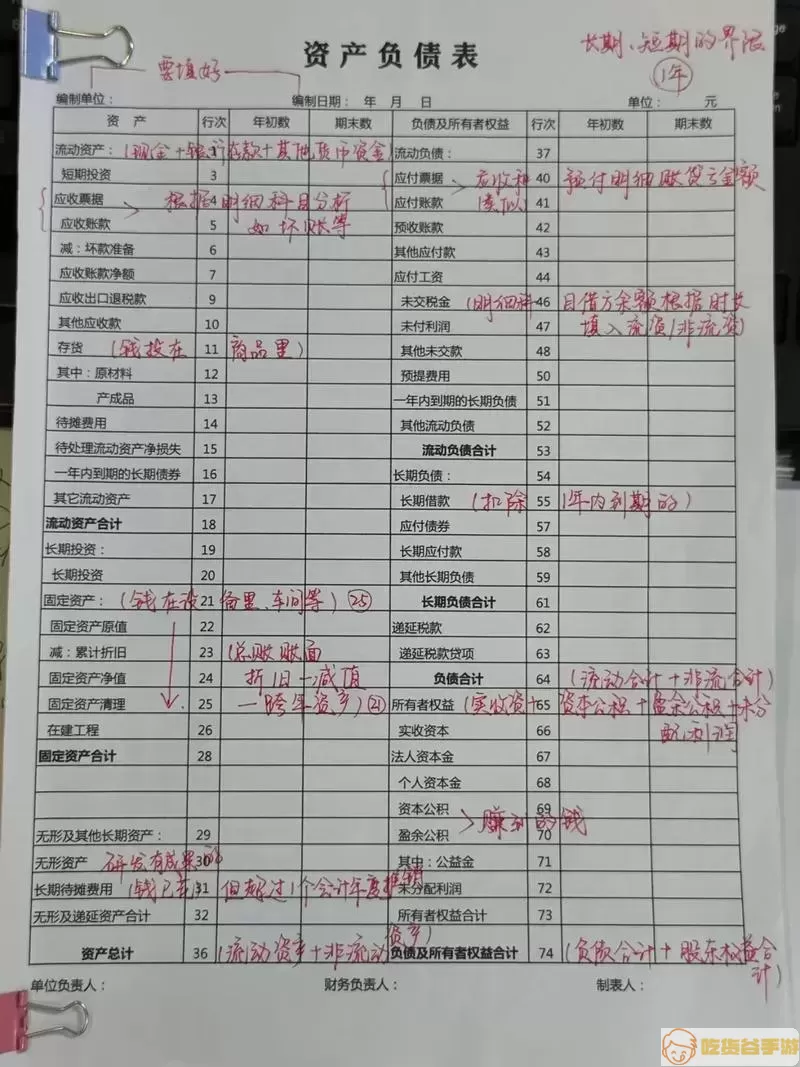 资产负债表
长期、短期的界限
1年
要填好
编制单位： 编制日期： 年 月 日 单位： 元
资 产 行次 年初数 期末数 负债及所有者权益 行次 年初数 期末数
流动资产： (现金+银行存款+其他货币资金) 流动负债： 37
短期投资 3 应付票据 40 应收和 预付明细账贷方金额
应收票据 4 根据明细科目分析 应付账款 41 (类似)
应收账款 5 如坏账等 预收账款 42
减：坏款准备 6 其他应付款 43
应收账款净额 7 应付工资 44
应收出口退税款 9 未交税金 (明细科 46 目借方余额根据时长
其他应收款 10 未付利润 47 填入流资/非流资)
存货 (钱投在 11 商品里) 其他未交款 48
其中：原材料 12 预提费用 50
产成品 13 一年内到期的长期负债 51
待摊费用 14 其他流动负债 52
待处理流动资产净损失 15 流动负债合计 53
一年内到期的长期债券 16 长期负债： 54
其它流动资产 17 长期借款 (扣除 55 1年内到期的)
流动资产合计 18 应付债券 57
长期投资： 19 长期应付款 58
长期投资 20 其他长期负债 59
固定资产： (钱在设 21 备里、车间等) 25 长期负债合计 61
固定资产原值 22 递延税款 62
减：累计折旧 23 (总账账面 递延税款贷项 63
固定资产净值 24 折旧-减值 负债合计 64 (流动合计+非流合计)
固定资产清理 25 一跨年资产) 21 所有者权益 (实收资+ 65 资本公积+盈余公积+未分
在建工程 26 实收资本 66 配利润
固定资产合计 28 法人资本金 67
个人资本金 68
资本公积 69 赚到的钱
无形及其他长期资产： 29 盈余公积 70
无形资产 研发有成果的 30 其中：公益金 71
长期待摊费用 (钱已花 31 但超过1个会计年度摊销 未分配利润 72
无形及递延资产合计 32 所有者权益合计 73
资产总计 36 (流动资产+非流动资产) 负债及所有者权益合计 74 (负债合计+股东权益合计)
单位负责人： 财务负责人： 制表人：
吃货谷手游